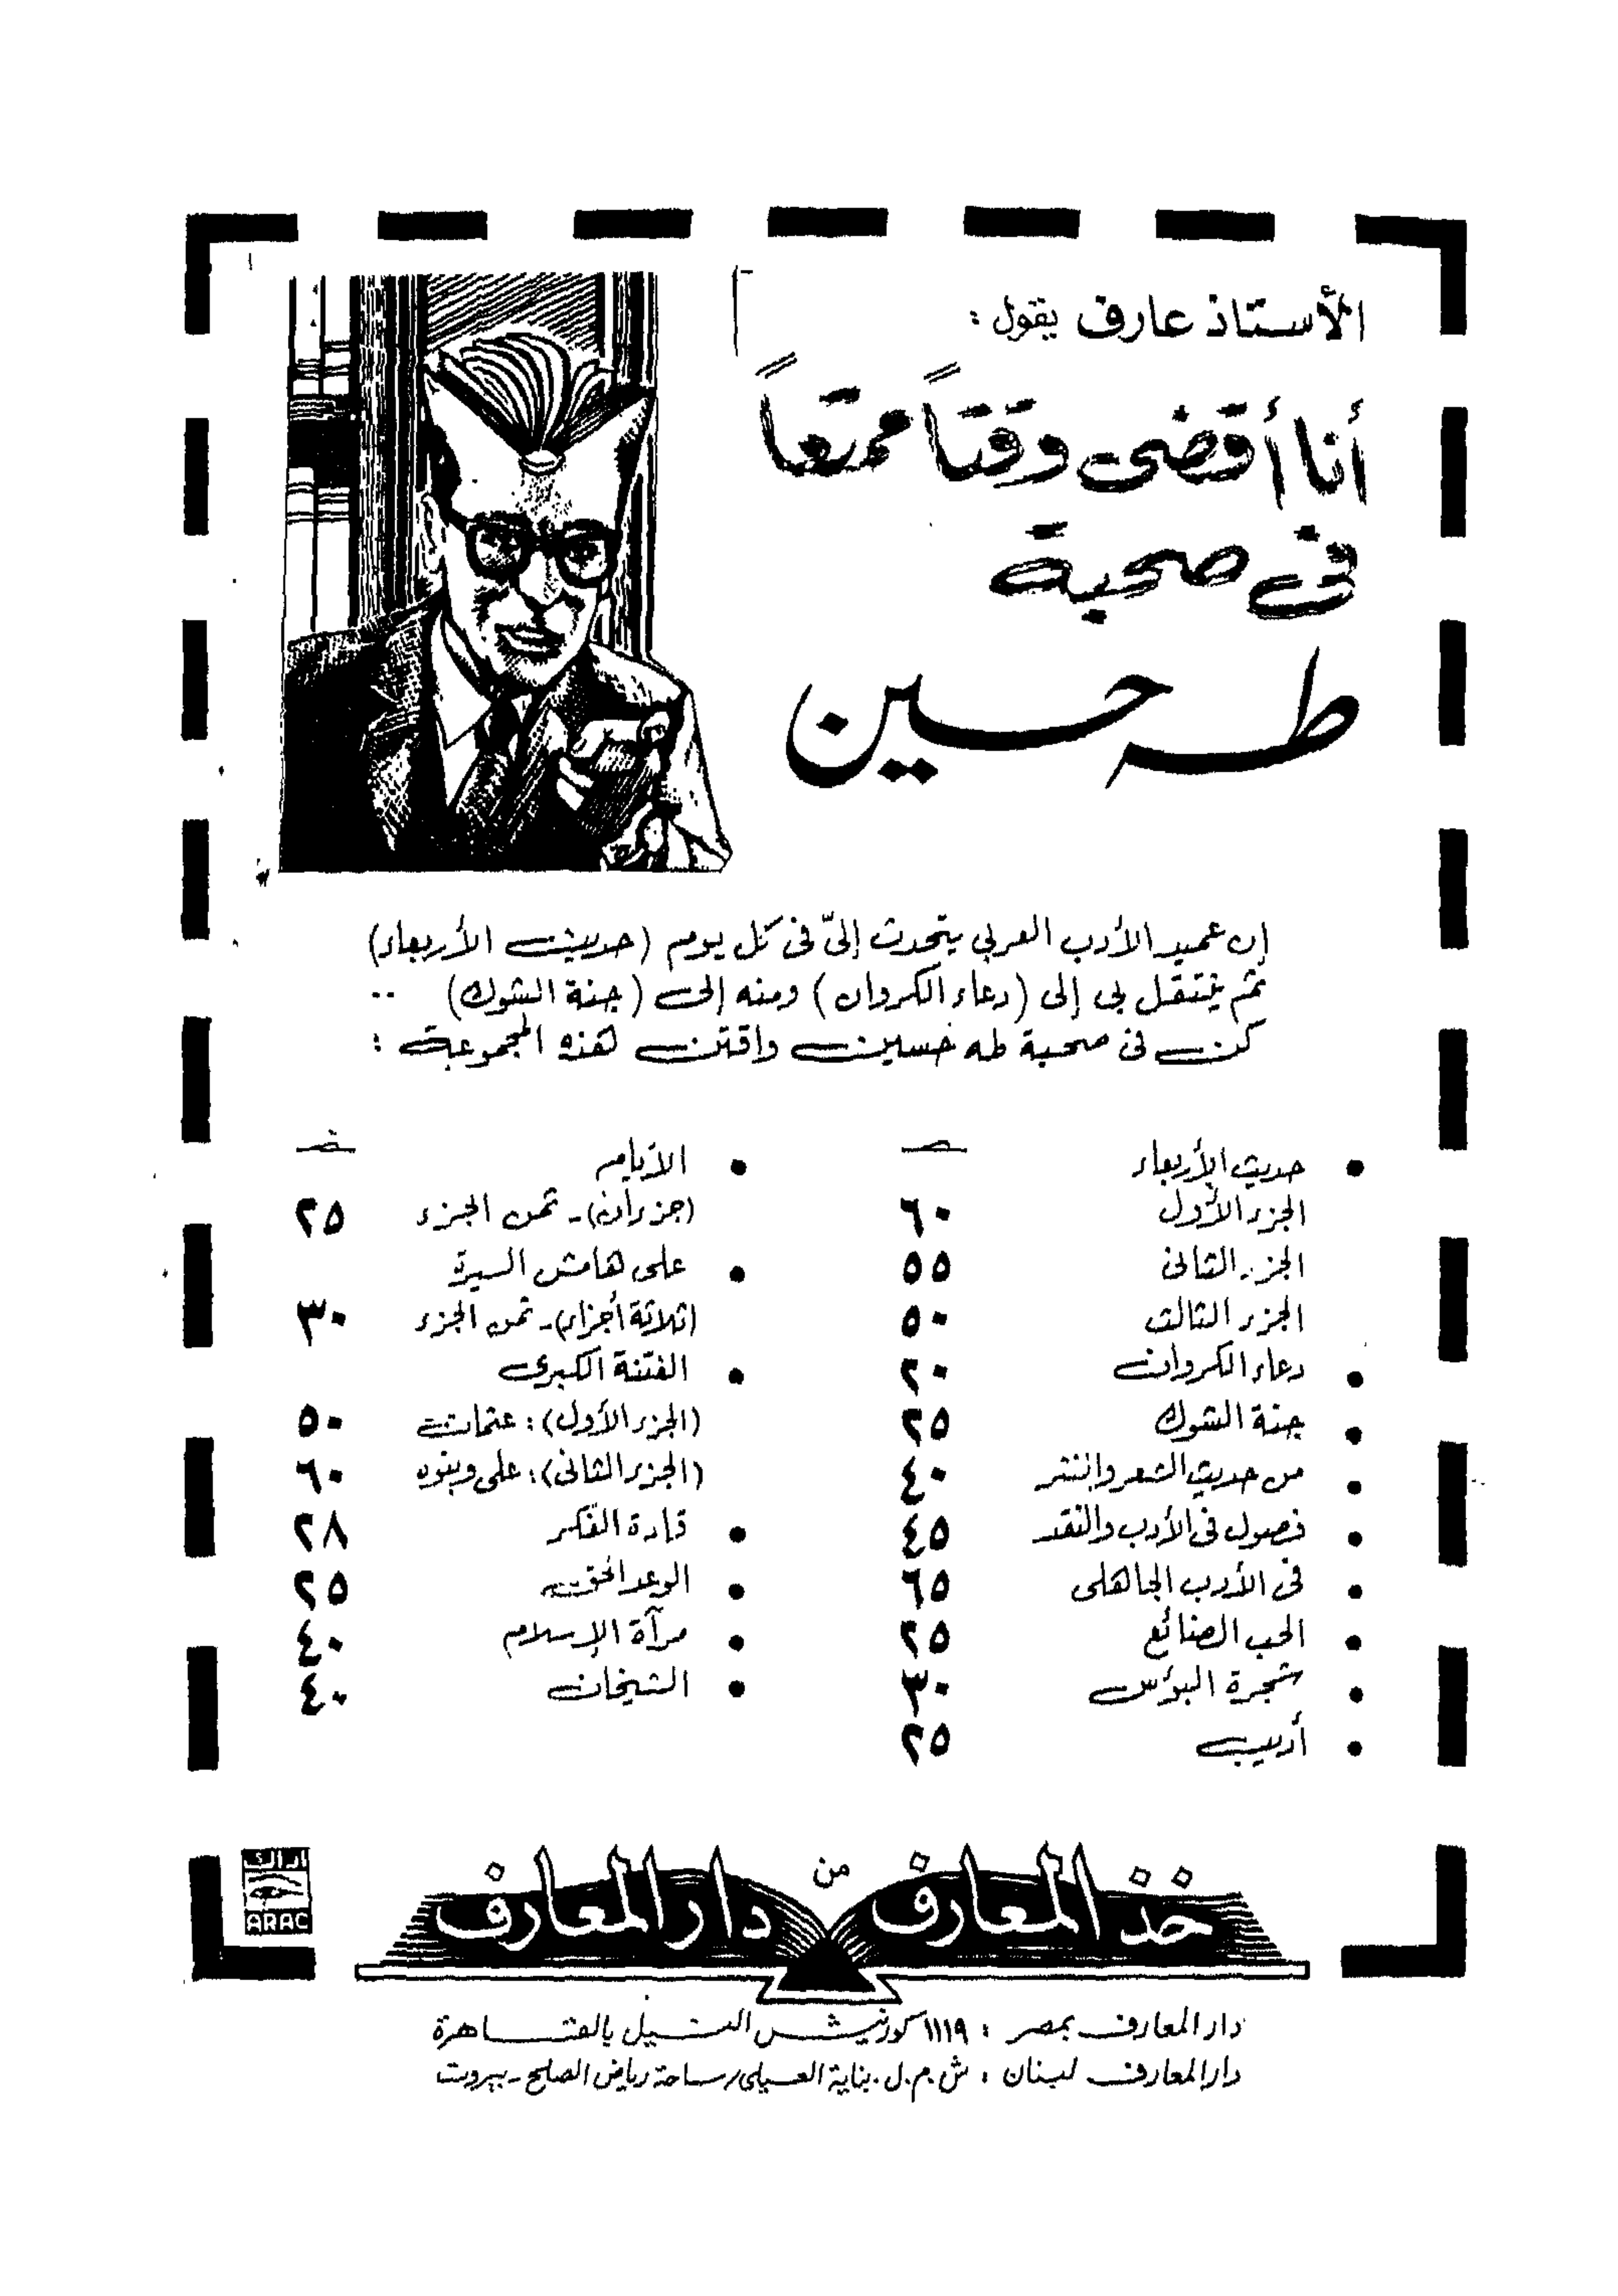 الأستاذ عارف يقول :
أنا أقضى وقتاً ممتعاً
فى صحبة
طه حسين
إن عميد الأدب العربى يتحدث إلىّ فى كل يوم (حديث الأربعاء)
ثم ينتقل بى إلى (دعاء الكروان) ومنه إلى (جنة الشوك) ..
كن فى صحبة طه حسين واقتن هذه المجموعة :
• حديث الأربعاء
الجزء الأول ٦٠
الجزء الثانى ٥٥
الجزء الثالث ٥٠
• دعاء الكروان ٢٠
• جنة الشوك ٢٥
• من حديث الشعر والنثر ٤٠
• فصول فى الأدب والنقد ٤٥
• فى الأدب الجاهلى ٦٥
• الحب الضائع ٢٥
• شجرة البؤس ٣٠
• أديب ٢٥
• الأيام
(جزءان) - ثمن الجزء ٢٥
• على هامش السيرة
(ثلاثة أجزاء) - ثمن الجزء ٣٠
• الفتنة الكبرى
(الجزء الأول) : عثمان ٥٠
(الجزء الثانى) : على وبنوه ٦٠
• قادة الفكر ٢٨
• الوعد الحق ٢٥
• مرآة الإسلام ٤٠
• الشيخان ٤٠
خذ المعارف من دار المعارف
ARAC
دار المعارف بمصر : ١١١٩ كورنيش النيل بالقاهرة
دار المعارف لبنان : ش.م.ل. بناية العسيلى / ساحة رياض الصلح - بيروت